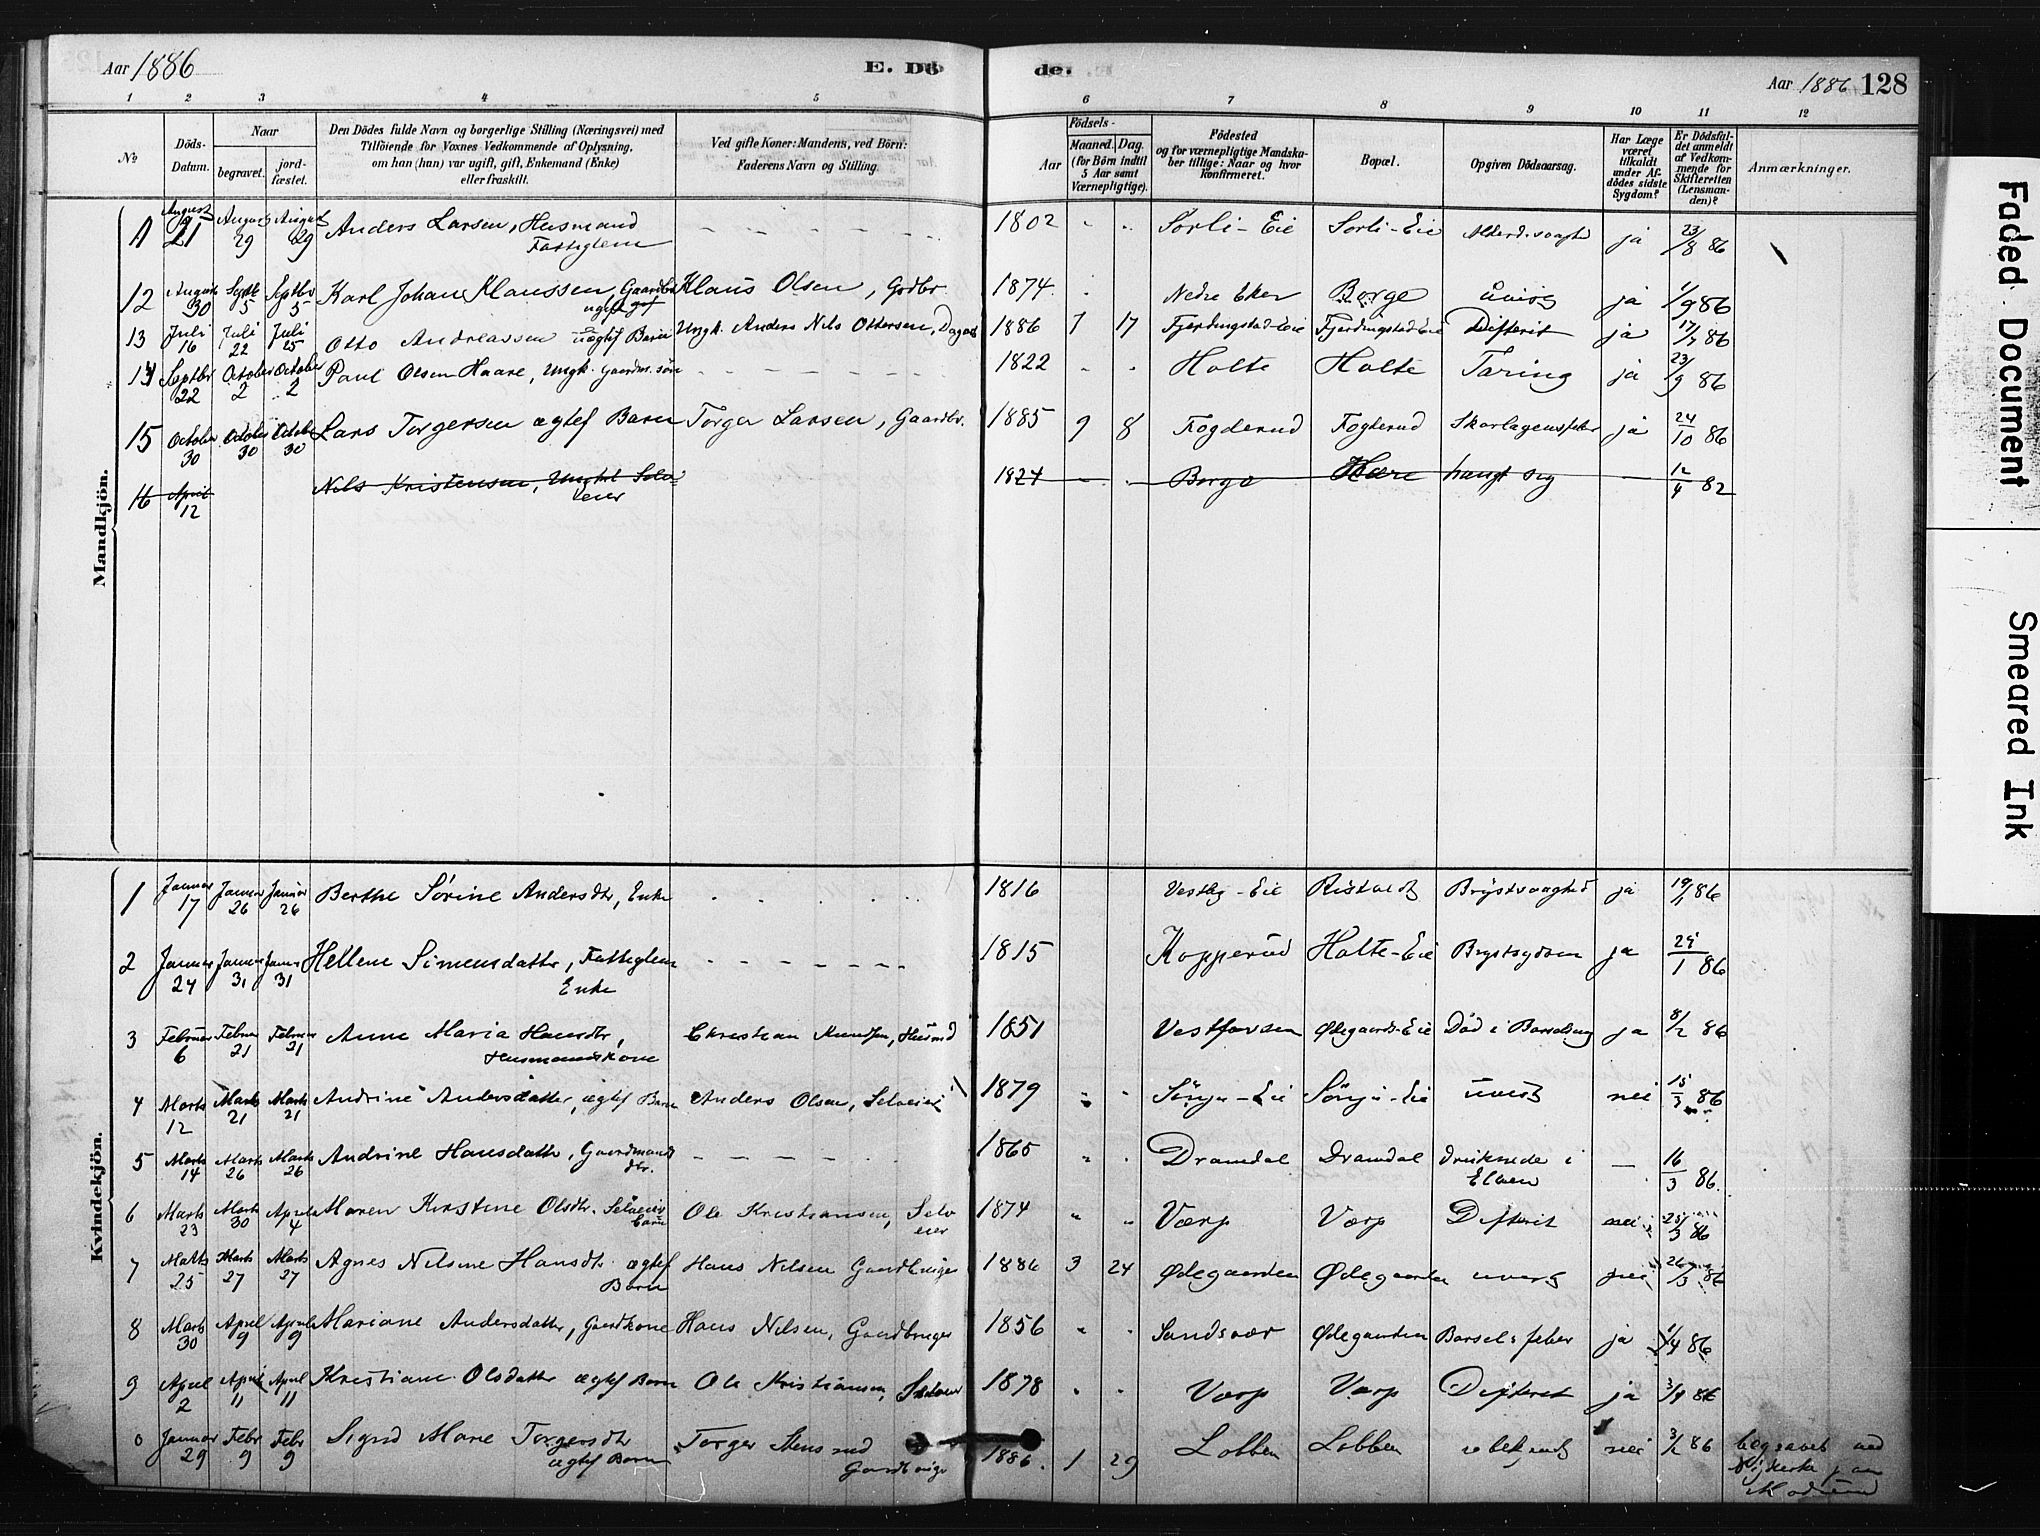 Aar 1886
E. Dö
de.
Aar 1886 128
1 2 3 4 5 6 7 8 9 10 11 12
No
Döds-
Datum.
Naar
begravet.
jord-
fæstet.
Den Dödes fulde Navn og borgerlige Stilling (Næringsvei) med
Tilföiende for Voxnes Vedkommende af Oplysning,
om han (hun) var ugift, gift, Enkemand (Enke)
eller fraskilt.
Ved gifte Koner: Mandens, ved Börn:
Faderens Navn og Stilling.
Födsels-
Aar
Maaned. Dag.
(for Börn indtil
5 Aar samt
Værnepligtige).
Födested
og for værnepligtige Mandska-
ber tillige: Naar og hvor
konfirmeret.
Bopæl.
Opgiven Dödsaarsag.
Har Læge
været
tilkaldt
under Af-
dödes sidste
Sygdom?
Er Dödsfal-
det anmeldt
af Vedkom-
mende for
Skifteretten
(Lensman-
den)?
Anmærkninger.
Mandkjön.
11 August 21 August 29 August 29 Anders Larsen, Husmand Fattiglem 1802 Sorli-Eie Sorli-Eie Alderdsvaghed ja 23/8 86
12 August 30 Septbr 5 Septbr 5 Karl Johan Klaussen Klaus Olsen, Gdbr 1874 Nedre Eker Borge uvis ja 1/9 86
13 Juli 16 Juli 22 Juli 25 Otto Andreassen uægtef Barn Ungk. Anders Nils Ottersen, 1886 1 17 Fjerdingstad-Eie Fjerdingstad-Eie Difterit ja 17/7 86
14 Septbr 22 October 2 October 2 Paul Olsen Haare, Ungk. Gaardm. søn 1822 Holte Holte Tæring ja 23/9 86
15 October 30 October 30 October 30 Lars Torgersen ægtef Barn Torger Larsen, Gaardbr. 1885 9 8 Fogderud Fogderud Skarlagensfeber ja 24/10 86
16 April 12 Nils Kristensen, Ungkl Selveier 1824 Borge Hære hængt sig 12/4 82
Kvindekjön.
1 Januar 17 Januar 26 Januar 26 Berthe Sørine Andersdtr, Enke 1816 Vestby-Eie Brystsvaghed ja 19/1 86
2 Januar 24 Januar 31 Januar 31 Hellene Simensdatter, Fattiglem Enke 1815 Kopperud Holte-Eie Brystsygdom ja 25/1 86
3 Februar 6 Februar 21 Februar 21 Anne Maria Hansdtr, Husmandskone Christian Knutsen, Husmd 1851 Vestfossen Ødegaards-Eie Död i Barselseng ja 8/2 86
4 Marts 12 Marts 21 Marts 21 Andrine Andersdatter, ægtef Barn Anders Olsen, Selveier 1879 uvist nei 15/3 86
5 Marts 14 Marts 26 Marts 26 Andrine Hansdatter, Gaardmands dtr. 1865 Dramdal Dramdal druknede i Elven 16/3 86.
6 Marts 23 Marts 30 April 4 Maren Kirstine Olsdtr. Selveiers Barn Ole Kristiansen, Selveier 1874 Værp Værp Difterit nei 25/3 86
7 Marts 25 Marts 27 Marts 27 Agnes Nilsine Hansdtr ægtef Barn Hans Nilsen Gaardbruger 1886 3 24 Ødegaarden Ødegaarden uvist nei 26/3 86
8 Marts 30 April 9 April 9 Mariane Andersdatter, Gaardkone Hans Nilsen, Gaardbruger 1856 Sandsvær Ødegaarden Barselsfeber ja 1/4 86
9 April 2 April 11 April 11 Kristiane Olsdatter ægtef Barn Ole Kristiansen, Selveier 1878 Værp Værp Difterit ja 3/4 86
0 Januar 29 Febr 9 Febr 9 Sigrid Marie Torgersdtr ægtef Barn Torger Stensrud Gaardbruger 1886. 1 29 Lobben Lobben ubekjendt nei 3/2 86 begravet ved Nykirke paa Modum
Faded Document
Smeared Ink